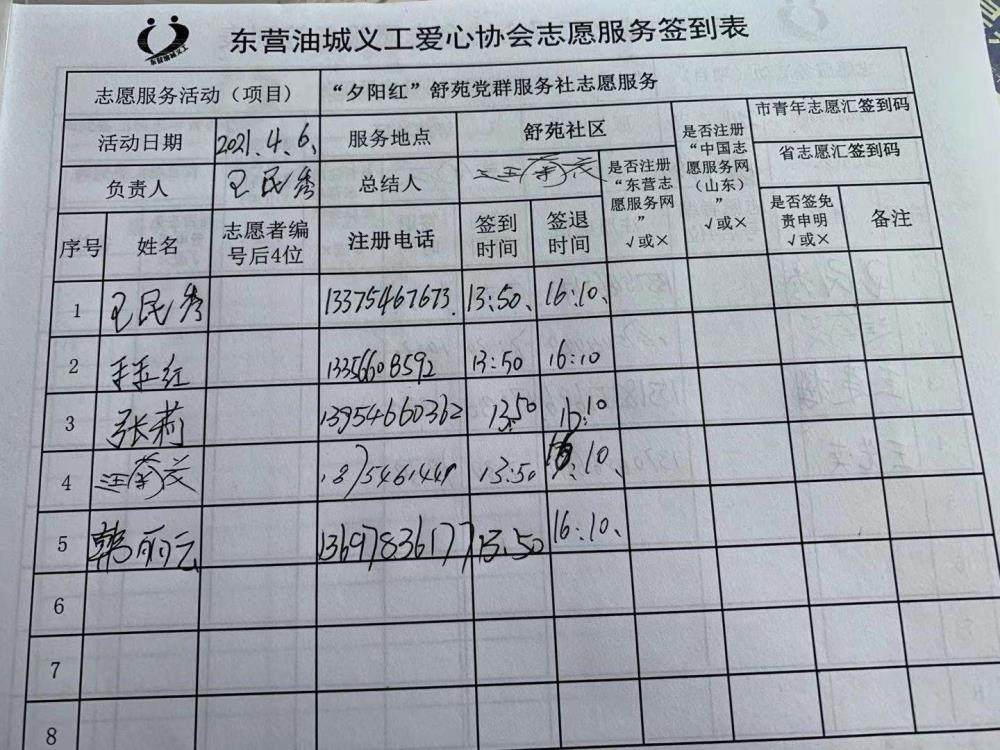 东营油城义工
东营油城义工爱心协会志愿服务签到表
志愿服务活动（项目） “夕阳红”舒苑党群服务社志愿服务
活动日期 2021.4.6. 服务地点 舒苑社区 是否注册“东营志愿服务网” √或× 是否注册“中国志愿服务网（山东）” √或× 市青年志愿汇签到码
省志愿汇签到码
负责人 王民秀 总结人
序号 姓名 志愿者编号后4位 注册电话 签到时间 签退时间 是否签免责申明 √或× 备注
1 王民秀 13375467673. 13:50. 16:10.
2 13:50 16:10
3 张莉 13954660362 13:50 16:10
4 13:50 16:10.
5 韩丽云 13697836177 13.50 16:10.
6
7
8